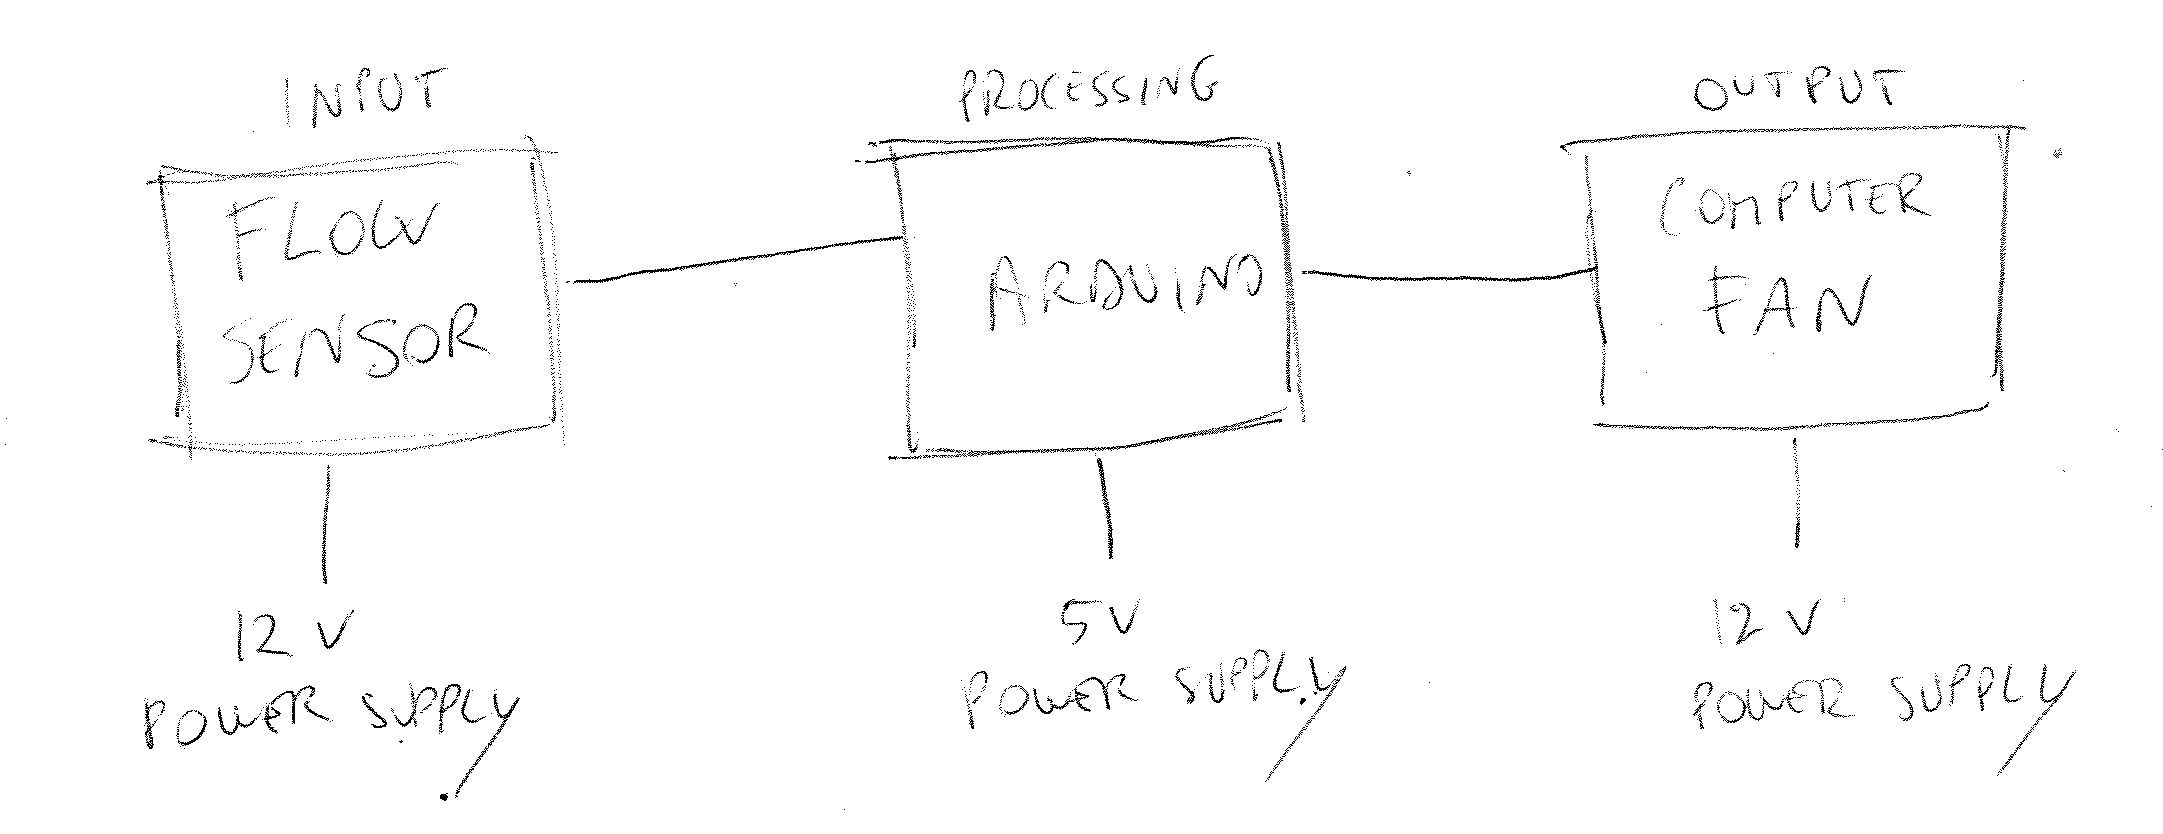 INPUT
FLOW
SENSOR
12 V
POWER SUPPLY
PROCESSING
ARDUINO
5V
POWER SUPPLY
OUTPUT
COMPUTER
FAN
12 V
POWER SUPPLY